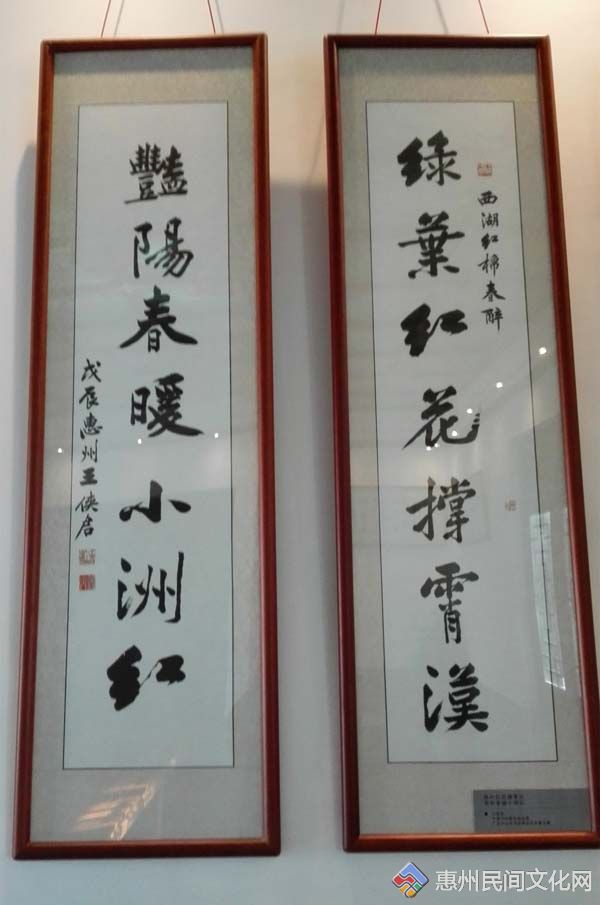 西湖红棉春醉
绿葉红花撑霄漢
豔陽春暖小洲红
戊辰惠州王侠启
惠州民间文化网